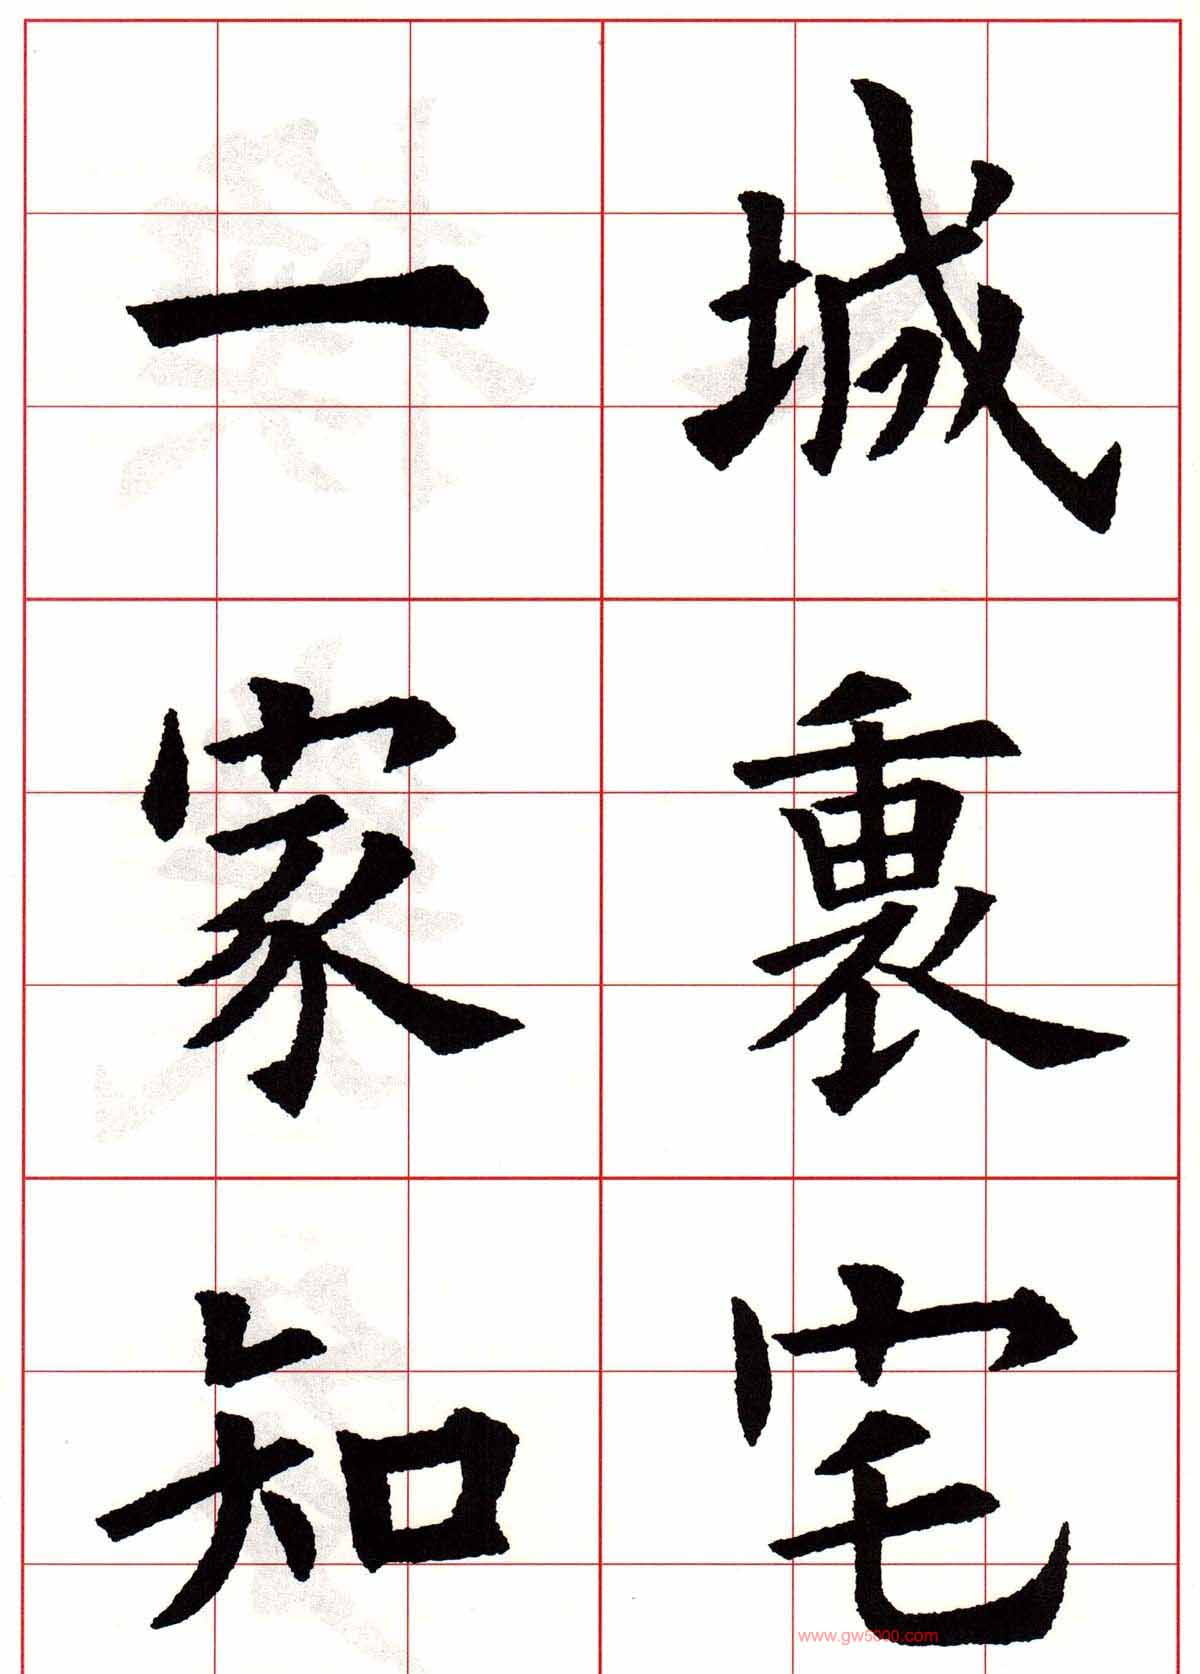 城裏宅
一家知
www.gw5000.com